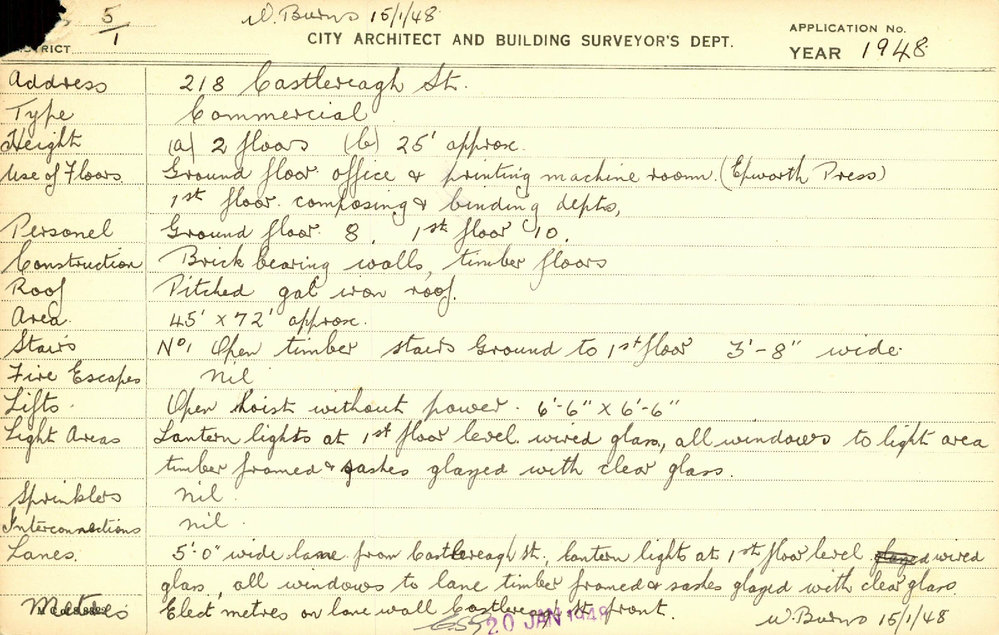 5/1 W. Burns 15/1/48
DISTRICT CITY ARCHITECT AND BUILDING SURVEYOR'S DEPT. APPLICATION No.
YEAR 1948
Address 218 Castlereagh St.
Type Commercial
Height (a) 2 floors (b) 25' approx.
Use of Floors Ground floor office & printing machine room (Epworth Press)
1st floor composing & binding depts,
Personel Ground floor 8, 1st floor 10.
Construction Brick bearing walls, timber floors
Roof Pitched gal iron roof.
Area 45' x 72' approx.
Stairs No 1 Open timber stairs Ground to 1st floor 3'-8" wide
Fire Escapes nil
Lifts Open hoist without power. 6'-6" x 6'-6"
Light Areas Lantern lights at 1st floor level wired glass, all windows to light area
timber framed & sashes glazed with clear glass.
Sprinklers nil.
Interconnections nil.
Lanes. 5'-0" wide lane from Castlereagh St, lantern lights at 1st floor level wired
glass, all windows to lane timber framed & sashes glazed with clear glass
Metres Elect metres on lane wall Castlereagh St front.
20 JAN 1948 W. Burns 15/1/48